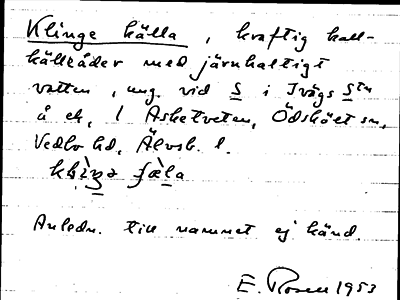 Klinge källa, kraftig kall-
källråder med järnhaltigt
vatten, ung. vid S i Tvägs Stn
å ek, l Asketveten, Ödskölt sn,
Vedbo hd, Älvsb. l.
Anledn. till namnet ej känd.
E. Rosell 1953